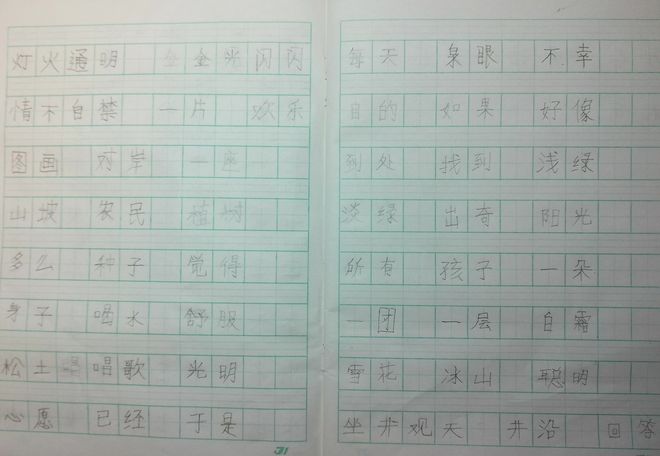 灯火通明 金光闪闪
情不自禁 一片 欢乐
图画 对岸 一座
山坡 农民 植树
多么 种子 觉得
身子 喝水 舒服
松土 唱歌 光明
心愿 已经 于是
31
每天 泉眼 不幸
目的 如果 好像
到处 找到 浅绿
淡绿 出奇 阳光
所有 孩子 一朵
一团 一层 白霜
雪花 冰山 聪明
坐井观天 井沿 回答